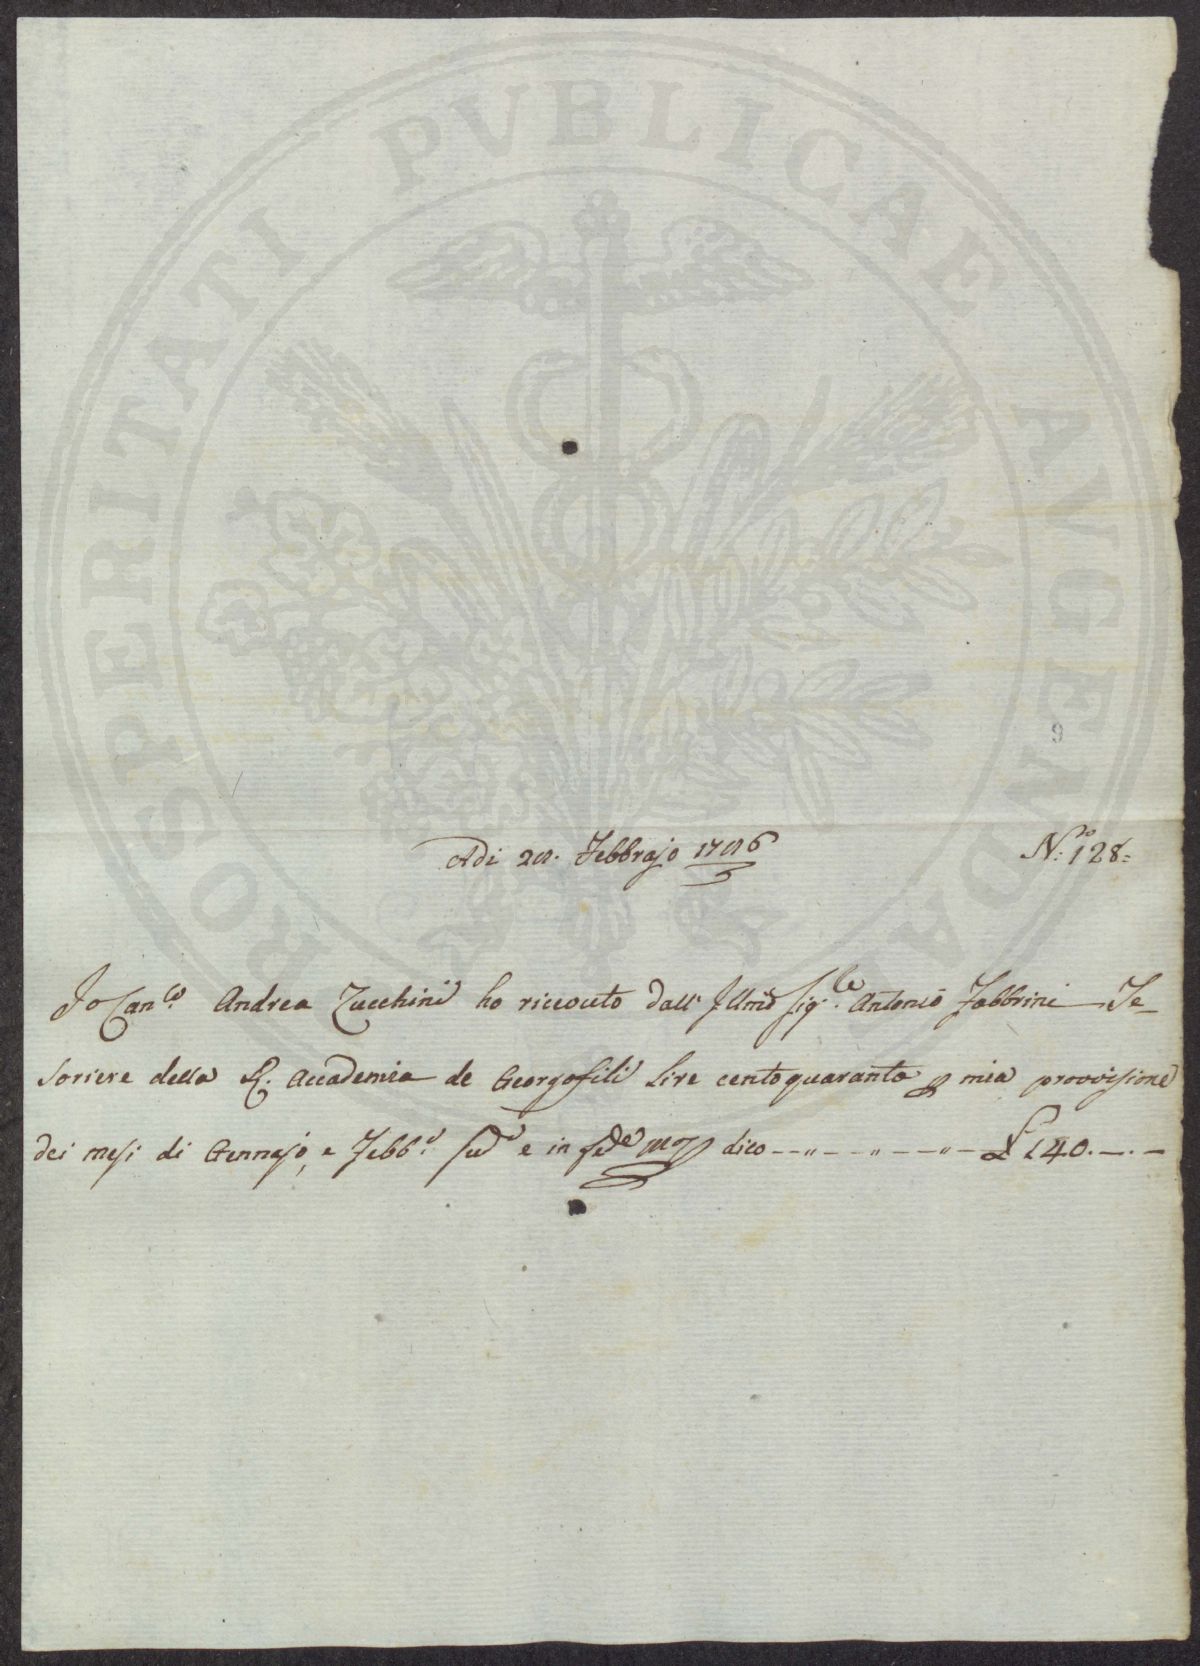 PROSPERITATI PVBLICAE AVGENDAE
9
Adi 29. Febbrajo 1796
N.ro 128=
Io Can.co Andrea Zucchini ho riceuto dall' Illmo Sig.re Antonio Fabbrini Te-
soriere della R. Accademia de Georgofili lire centoquaranta p mia provvisione
dei mesi di Gennajo, e Febb.o sud.o e in fede mp dico --"--"---"- £ 140.-.-